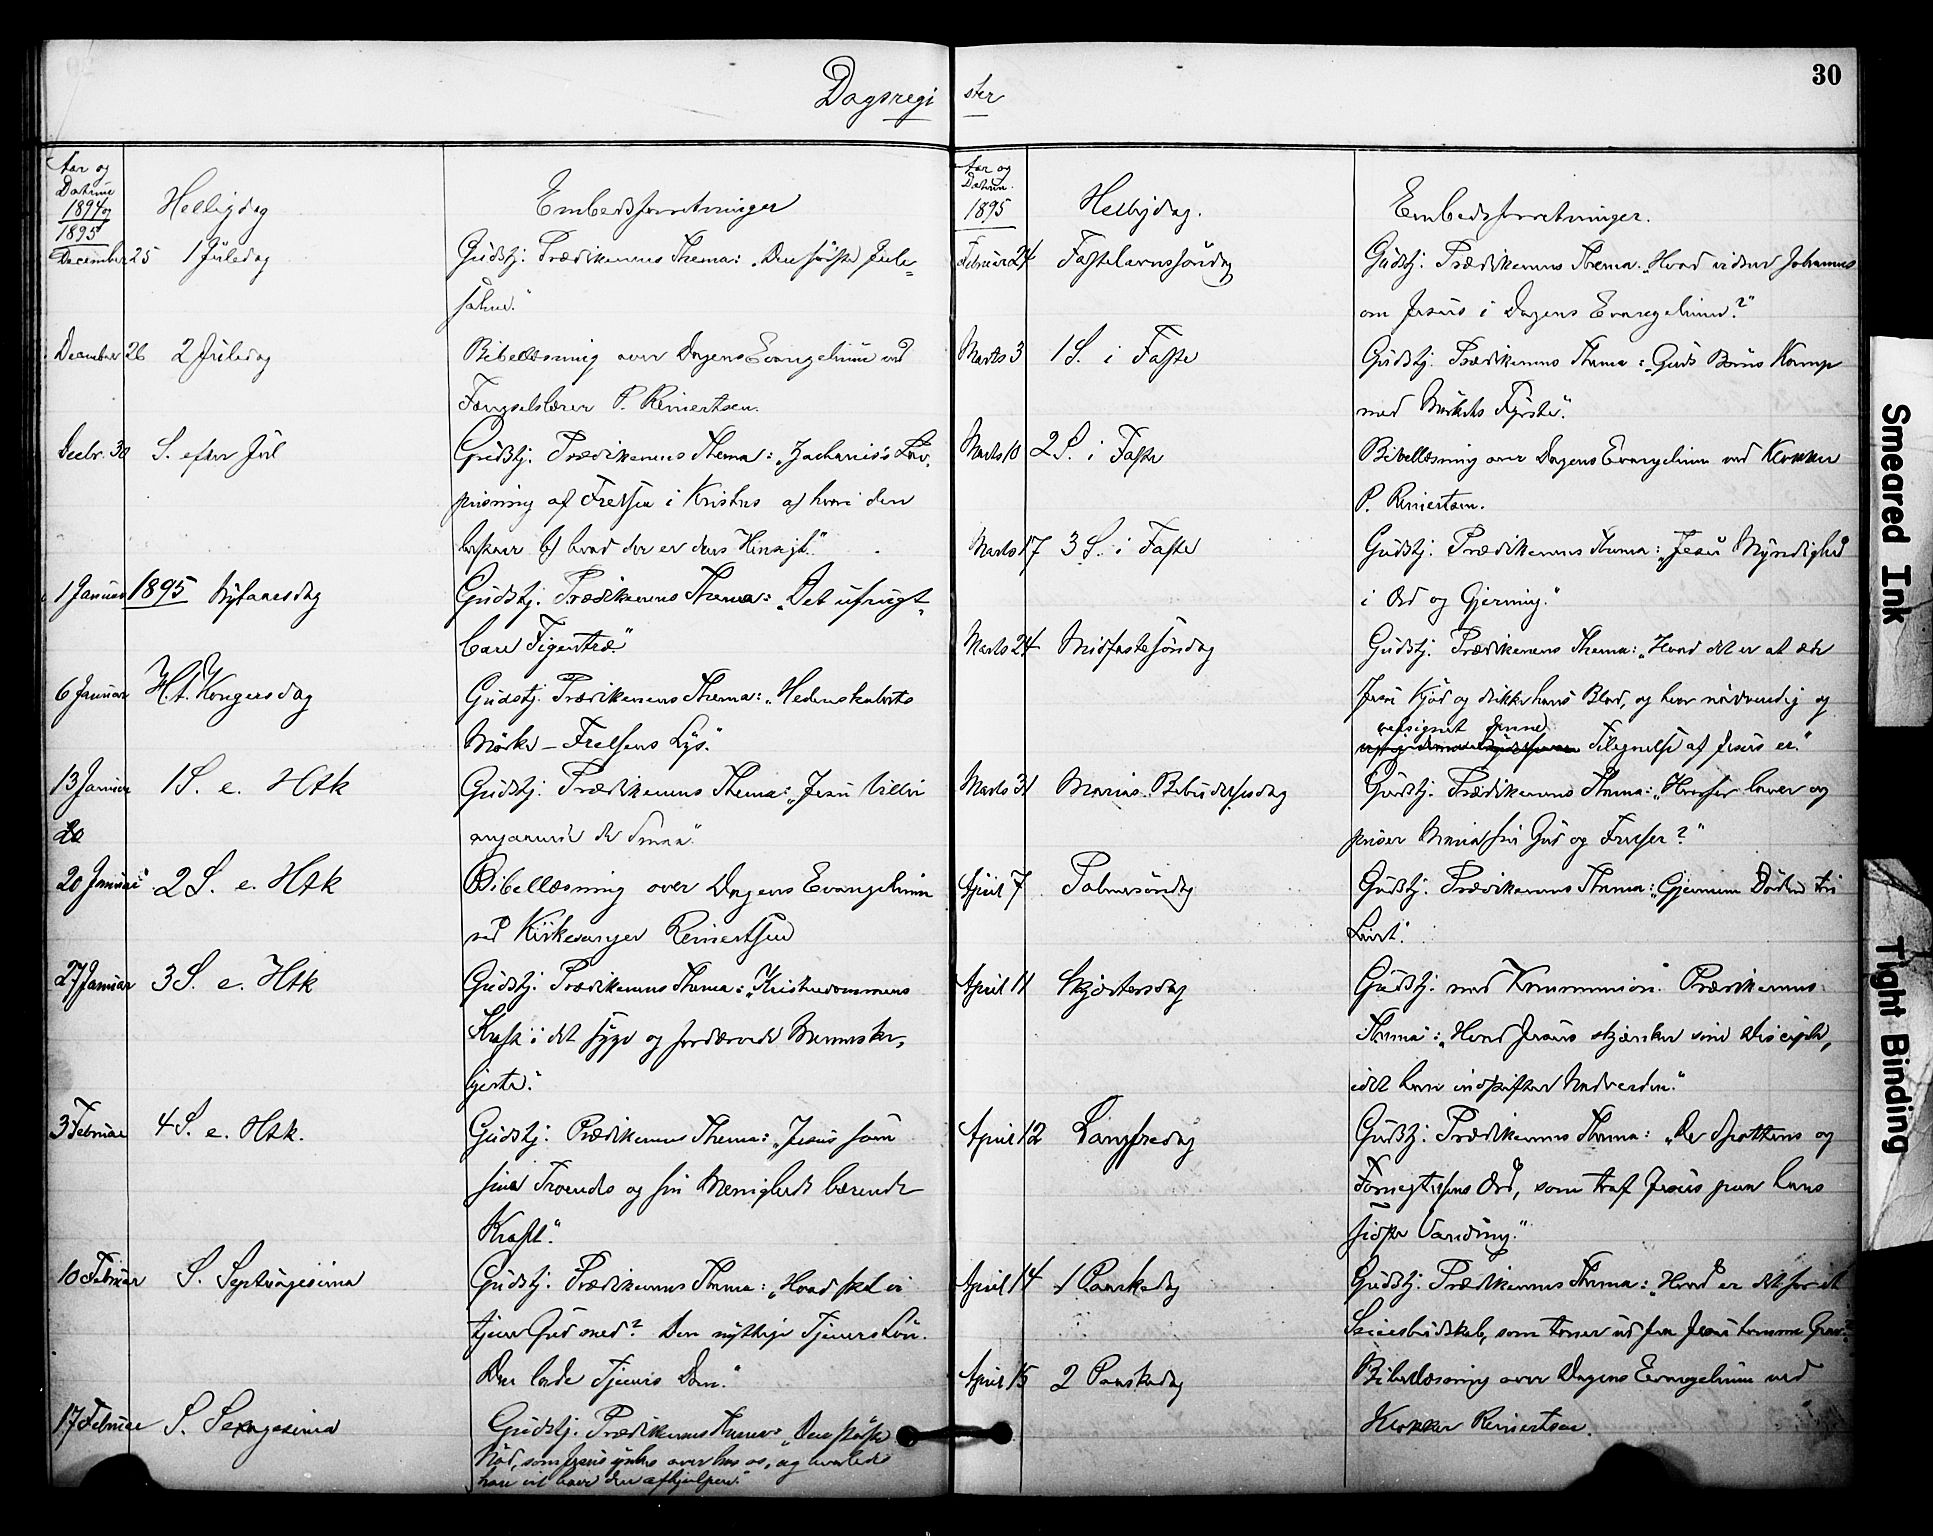 30
Dagsregi ster
Aar og
Datum
1894 og
1895
Helligdag
Embedsforretninger
December 25 1 Juledag Gudstj. Prædikenens Thema: „Den første Jule=
salme."
December 26 2 Juledag Bibellæsning over Dagens Evangelium ved
Fængselslærer P. Reinertsen.
Decbr. 30 S. efter Jul Gudstj. Prædikenens Thema: „Zacharias's Lov,
prisning af Frelsen i Kristus a) hvori den
bestaar b) hvad der er dens Hensigt."
1 Januar 1895 Nytaarsdag Gudstj. Prædikenens Thema: „Det ufrugt„
bare Figentræ."
6 Januar H. t. Kongersdag Gudstj. Prædikenens Thema: „Hedenskabets
Mørke – Frelsens Lys."
13 Januar 1 S. e. Htk Gudstj. Prædikenens Thema: „Jesu Villie
angaaende de Smaa"
20
20 Januar 2 S. e. Htk Bibellæsning over Dagens Evangelium
ved Kirkesanger Reinertsen
27 Januar 3 S. e. Htk Gudstj. Prædikenens Thema: „Kristendommens
Kraft i det syge og fordærvede Menneske„
hjerte."
3 Februar 4 S. e. Htk. Gudstj. Prædikenens Thema: „Jesus som
sine Troendes og sin Menigheds bærende
Kraft."
10 Februar S. Septuagesima Gudstj. Prædikenens Thema: „Hvad skal vi
tjene Gud med? Den nyttige Tjeners Løn.
Den lade Tjeners Dom."
17 Februar S. Sexagesima Gudstj. Prædikenens Thema: „Den største
Nød, som Jesus ynkes over hos os, og hvorledes
han vil have den afhjulpen."
Aar og
Datum.
1895
Helligdag.
Embedsforretninger.
Februar 24 Fastelavnssøndag Gudstj. Prædikenens Thema: „Hvad vidner Johannes
om Jesus i Dagens Evangelium?"
Marts 3 1 S. i Faste Gudstj. Prædikenens Thema: „Guds Børns Kamp
med Mørkets Fyrste".
Marts 10 2 S. i Faste Bibellæsning over Dagens Evangelium ved Klokker
P. Reinertsen.
Marts 17 3 S. i Faste Gudstj. Prædikenens Thema: „Jesu Myndighed
i Ord og Gjerning."
Marts 24 Midfastesøndag Gudstj. Prædikenens Thema: „Hvad det er at æde
Jesu Kjød og drikke hans Blod, og hvor nødvendig og
velsignet denne
Tilegnelse af Jesus er."
Marts 31 Mariæ Bebudelsesdag Gudstj. Prædikenens Thema: „Hvorfor lover og
priser Maria sin Gud og Frelser?"
April 7 Palmesøndag Gudstj. Prædikenens Thema: „Gjennem Døden til
Livet."
April 11 Skjærtorsdag Gudstj. med Kommunion. Prædikenens
Thema: „Hvad Jesus skjænker sine Disciple,
idet han indstifter Nadverden."
April 12 Langfredag Gudstj. Prædikenens Thema: „De Spottens og
Fornegtelsens Ord, som traf Jesus paa hans
sidste Vandring."
April 14 1 Paaskedag Gudstj. Prædikenens Thema: „Hvad er det for et
Seiersbudskab, som toner ud fra Jesu tomme Grav?"
April 15 2 Paaskedag Bibellæsning over Dagens Evangelium ved
Klokker Reinertsen.
Smeared Ink
Tight Binding